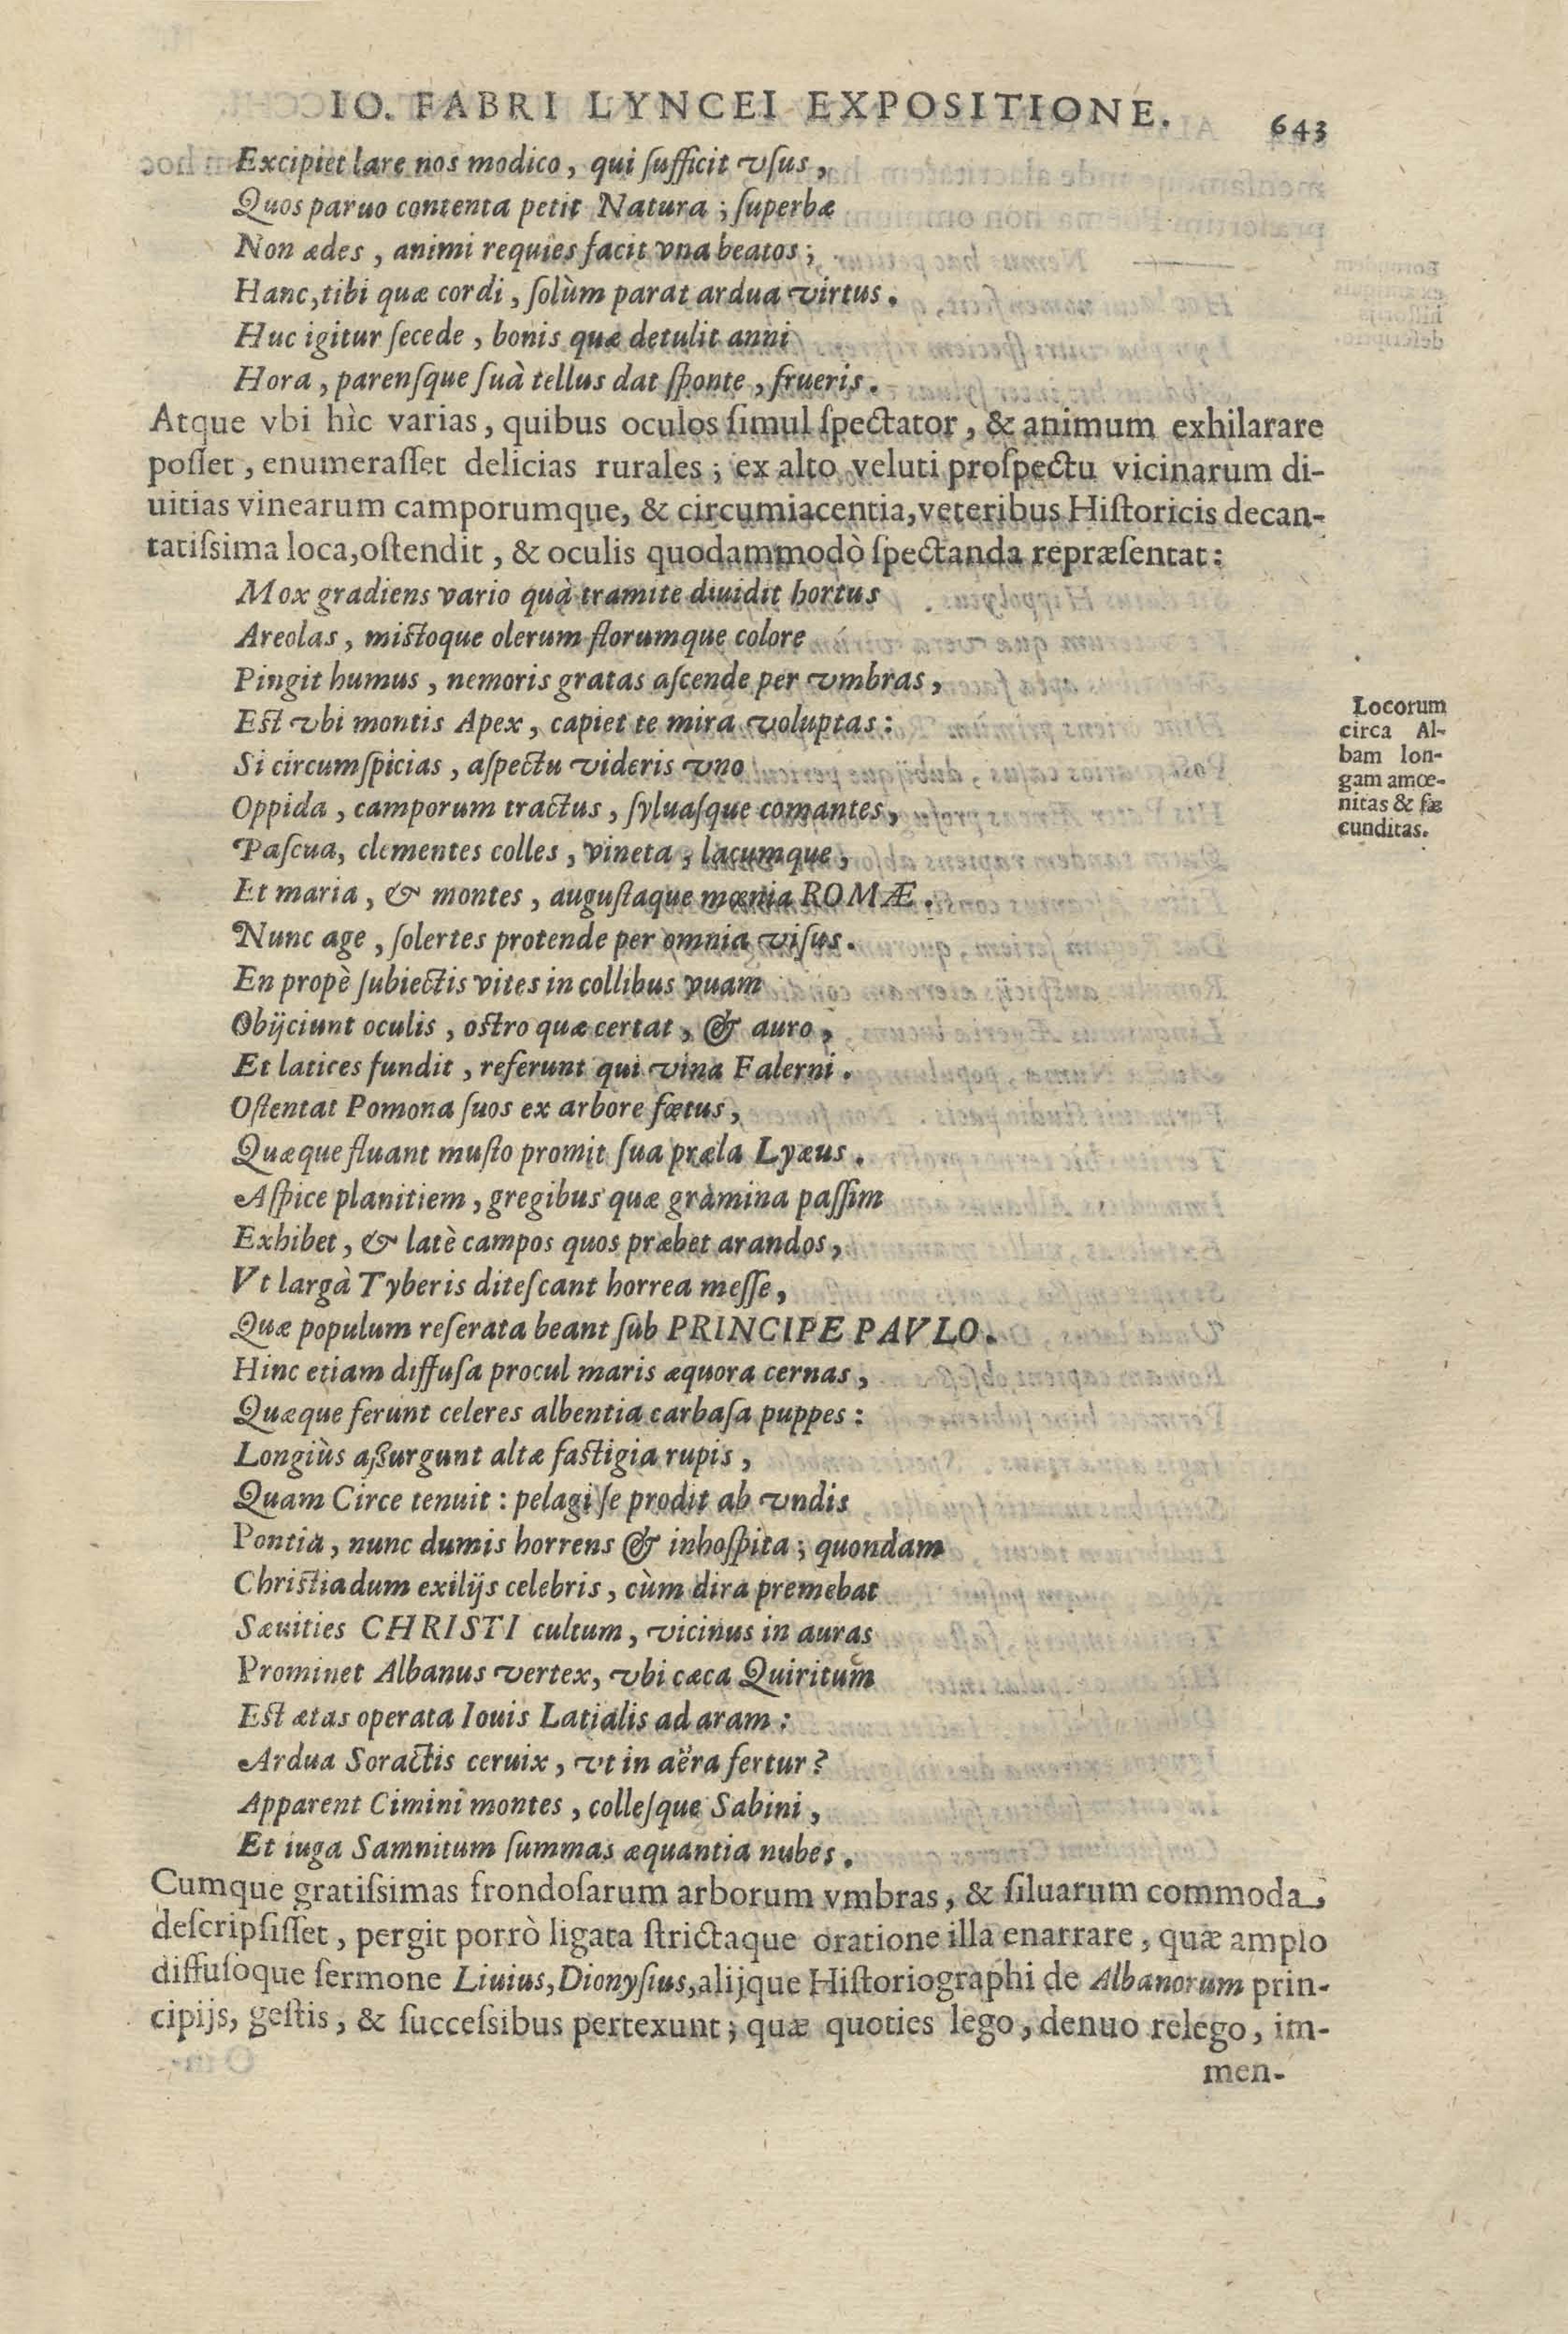 IO. FABRI LYNCEI EXPOSITIONE. 643
Excipiet lare nos modico, qui ſufficit vſus,
Quos paruo contenta petit Natura; ſuperbæ
Non ædes, animi requies facit vna beatos;
Hanc, tibi quæ cordi, ſolùm parat ardua virtus.
Huc igitur ſecede, bonis quæ detulit anni
Hora, parenſque ſuà tellus dat ſponte, frueris.
Atque vbi hìc varias, quibus oculos ſimul ſpectator, & animum exhilarare
poſſet, enumeraſſet delicias rurales; ex alto veluti proſpectu vicinarum di-
uitias vinearum camporumque, & circumiacentia, veteribus Hiſtoricis decan-
tatiſsima loca, oſtendit, & oculis quodammodò ſpectanda repræſentat:
Mox gradiens vario quà tramite diuidit hortus
Areolas, miſtoque olerum florumque colore
Pingit humus, nemoris gratas aſcende per vmbras,
Eſt vbi montis Apex, capiet te mira voluptas:
Si circumſpicias, aſpectu videris vno
Oppida, camporum tractus, ſyluaſque comantes,
Paſcua, clementes colles, vineta, lacumque,
Et maria, & montes, auguſtaque mœnia ROMÆ.
Nunc age, ſolertes protende per omnia viſus.
En propè ſubiectis vites in collibus vuam
Obijciunt oculis, oſtro quæ certat, & auro,
Et latices fundit, referunt qui vina Falerni.
Oſtentat Pomona ſuos ex arbore fœtus,
Quæque fluant muſto promit ſua præla Lyæus.
Aſpice planitiem, gregibus quæ gramina paſſim
Exhibet, & latè campos quos præbet arandos,
Vt largà Tyberis diteſcant horrea meſſe,
Quæ populum reſerata beant ſub PRINCIPE PAVLO.
Hinc etiam diffuſa procul maris æquora cernas,
Quæque ferunt celeres albentia carbaſa puppes:
Longiùs aſſurgunt altæ faſtigia rupis,
Quam Circe tenuit: pelagi ſe prodit ab vndis
Pontia, nunc dumis horrens & inhoſpita; quondam
Chriſtiadum exilijs celebris, cùm dira premebat
Sæuities CHRISTI cultum, vicinus in auras
Prominet Albanus vertex, vbi cæca Quiritum
Eſt ætas operata Iouis Latialis ad aram:
Ardua Soractis ceruix, vt in aëra fertur?
Apparent Cimini montes, colleſque Sabini,
Et iuga Samnitum ſummas æquantia nubes.
Cumque gratiſsimas frondoſarum arborum vmbras, & ſiluarum commoda,
deſcripſiſſet, pergit porrò ligata ſtrictaque oratione illa enarrare, quæ amplo
diffuſoque ſermone Liuius, Dionyſius, alijque Hiſtoriographi de Albanorum prin-
cipijs, geſtis, & ſucceſsibus pertexunt; quæ quoties lego, denuo relego, im-
men-
Locorum
circa Al-
bam lon-
gam amœ-
nitas & fæ
cunditas.